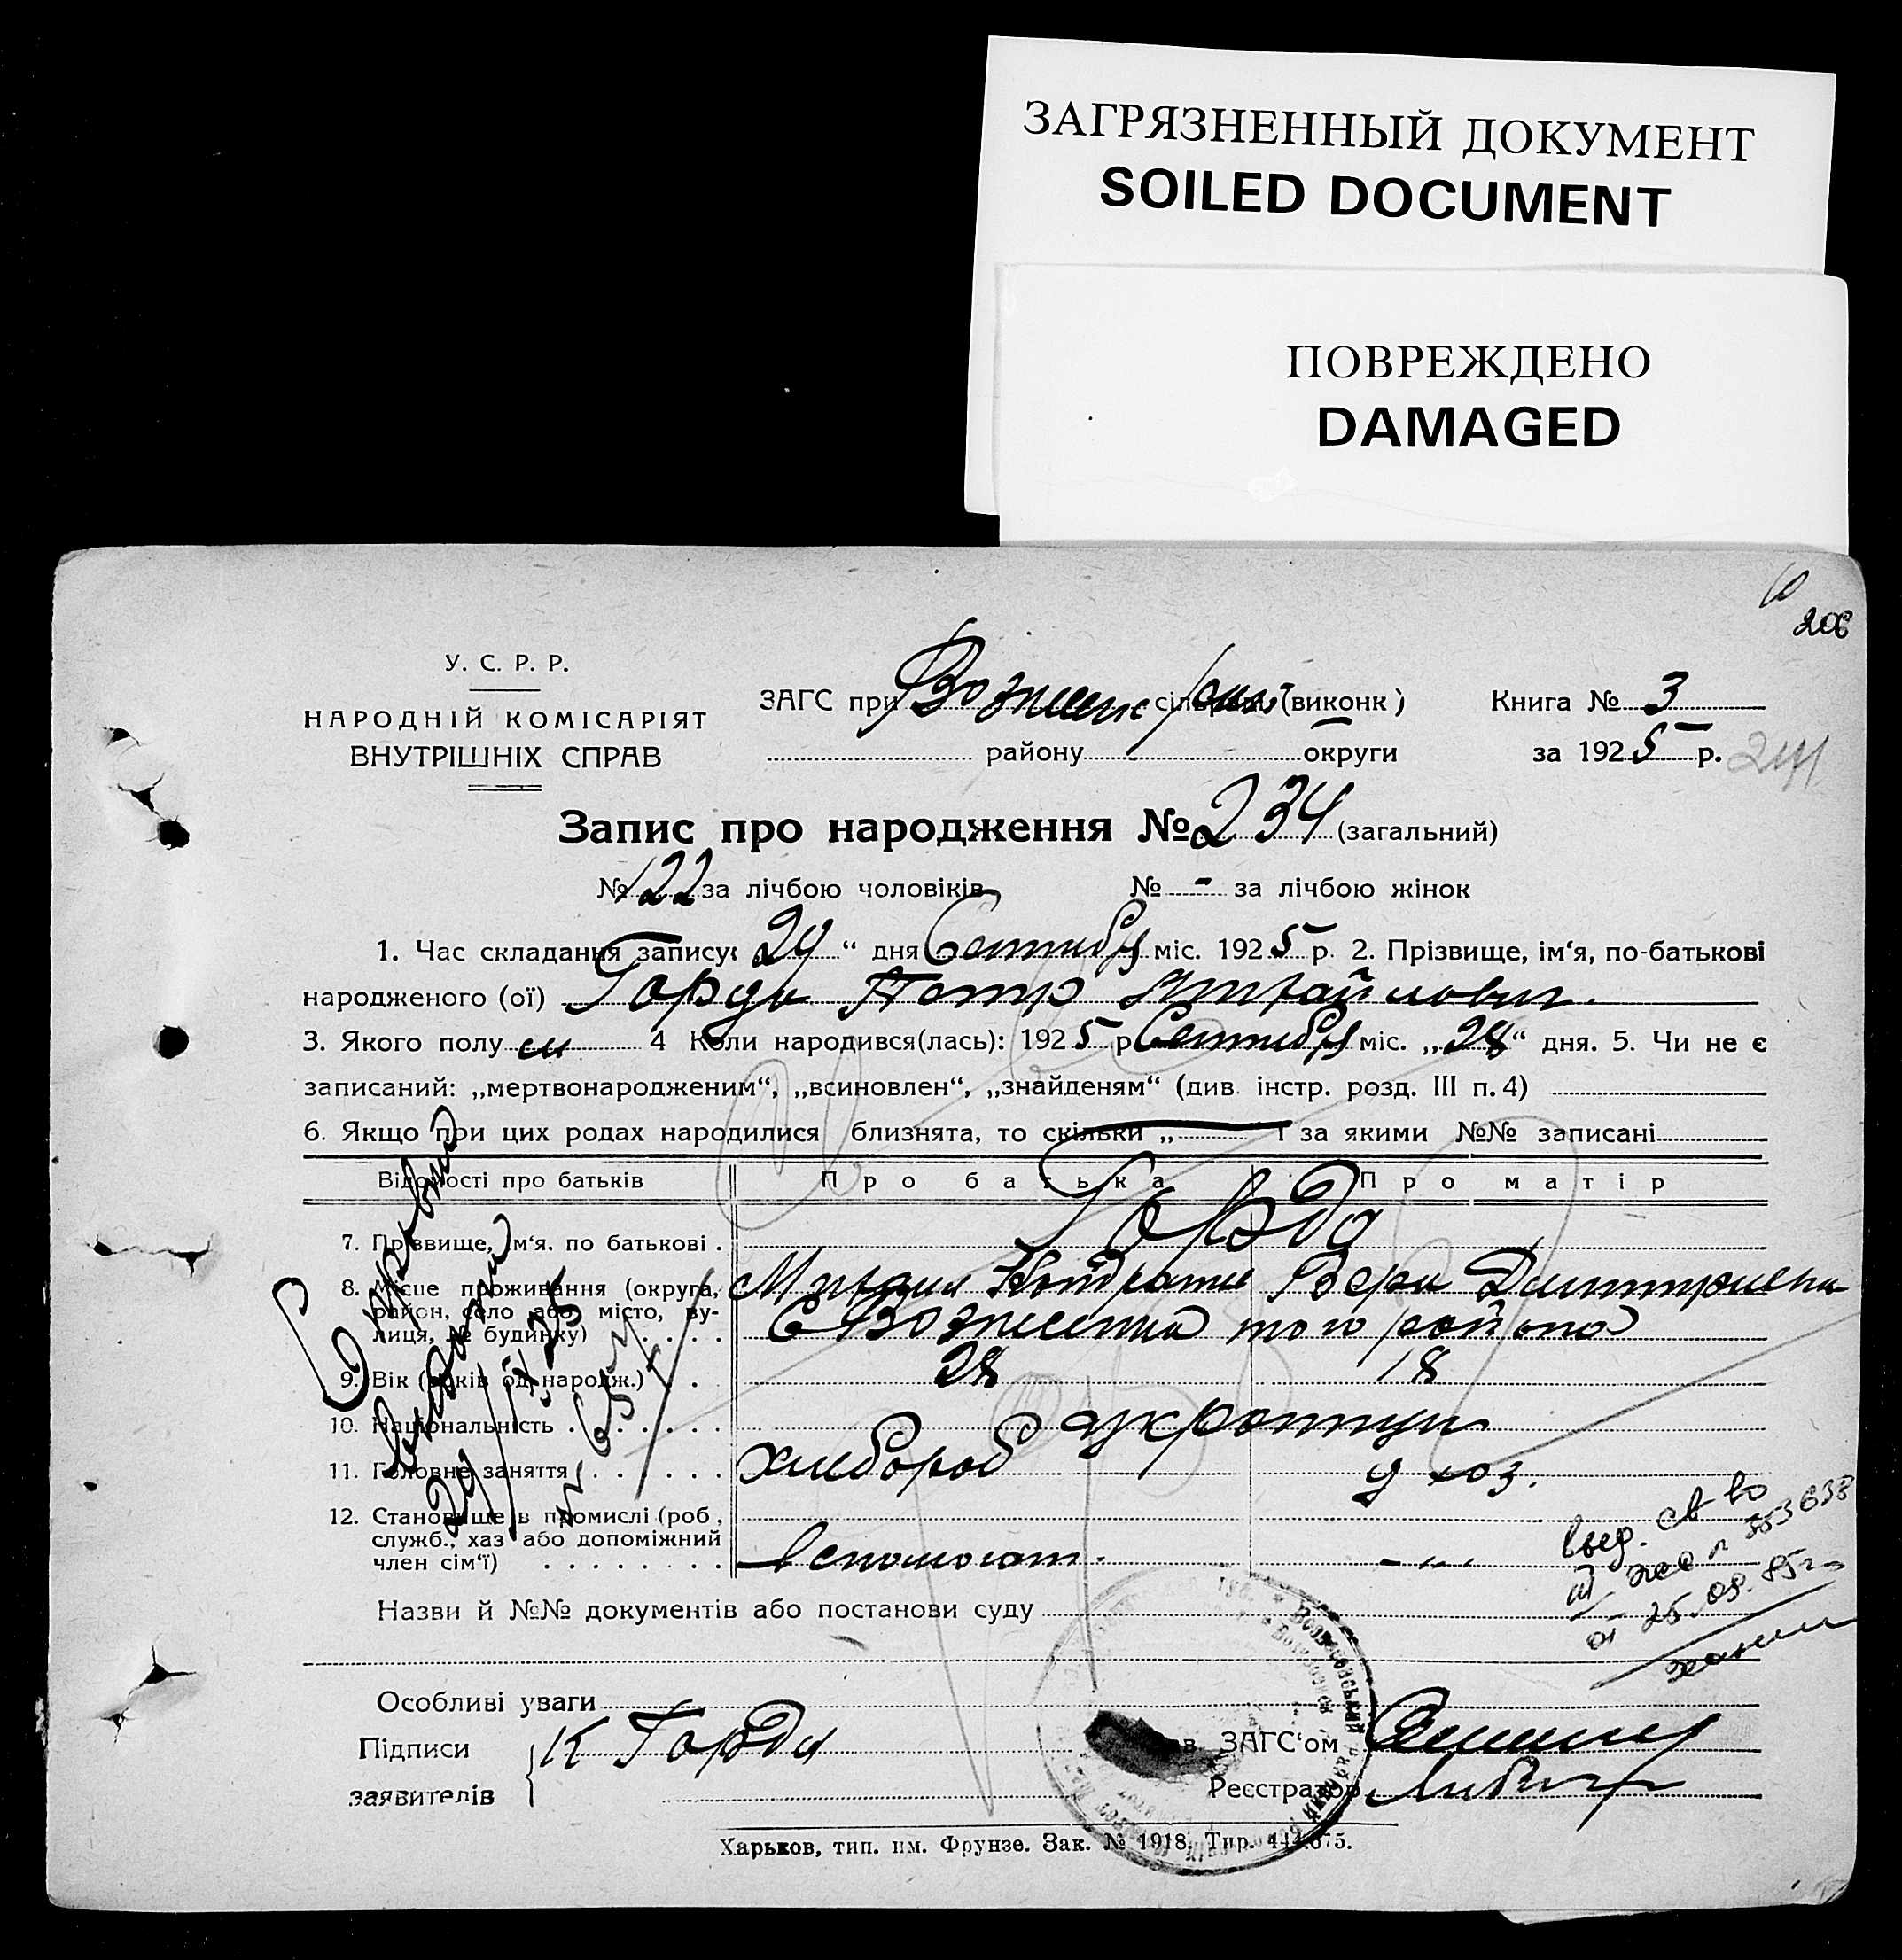 ЗАГРЯЗНЕННЫЙ ДОКУМЕНТ
SOILED DOCUMENT
ПОВРЕЖДЕНО
DAMAGED
206
У. С. Р. Р.
НАРОДНІЙ КОМІСАРІЯТ
ВНУТРІШНІХ СПРАВ
ЗАГС при Вознесенск (виконк)
району округи
Книга № 3
за 1925 р.
Запис про народження № 234 (загальний)
№ 122 за лічбою чоловіків № - за лічбою жінок
1. Час складання запису: 29 “ дня Сентября міс. 1925 р. 2. Прізвище, ім‘я, по-батькові
народженого (ої) Горда Петр Михайлович.
3. Якого полу м 4 Коли народився(лась): 1925 р Сентября міс. „28“ дня. 5. Чи не є
записаний: „мертвонародженим“, „всиновлен“, „знайденям“ (див. інстр. розд. III п. 4)
6. Якщо при цих родах народилися близнята, то скільки „ і за якими №№ записані
Відомості про батьків Про батька Про матір
7. Прізвище, ім‘я. по батькові . Горда
Михаил Кондратие Вера Дмитриена
8. Місце проживання (округа,
район, село або місто, ву-
лиця, № будинку) . . . . С Вознесенка того района
9. Вік (років од народж.) . . 28 18
10. Національність . . . . . . . украинцы
11. Головне заняття . . . . . . . хлебороб д хоз.
12. Становище в промислі (роб.,
служб., хаз або допоміжний
член сім‘ї) . . . . . . . . вспомогат. - „ -
Справка
выдана
29/IX 25
выд. св во
№ 353638
от 25.09.85г
Назви й №№ документів або постанови суду
Особливі уваги
Підписи
заявителів
К Горда
Зав. ЗАГС‘ом
Реєстратор
Харьков, тип. им. Фрунзе. Зак. № 1918. Тир. 444.675.